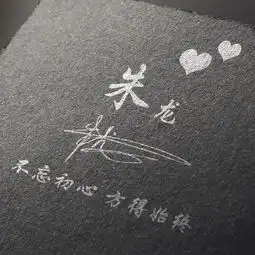 朱
龙
不忘初心 方得始终